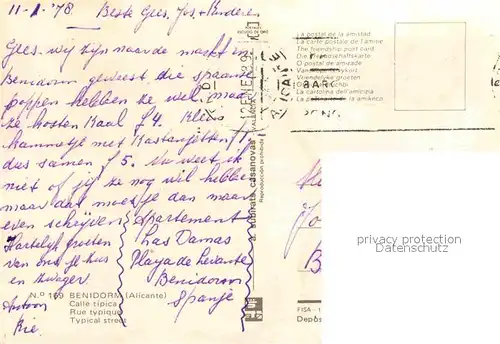 11-1-'78 Beste Gies, Jos, + Kinderen
Gies. wij zijn naar de markt in
Benidorm geweest. die spaanse
poppen hebben ze wel, maar
ze kosten Kaal f4. Klein
kammetje met Kastanjetten f1.
dus samen f5. Nu weet ik
niet of jij ze nog wil hebben
maar dat moet je dan maar
even schrijven
Hartelijk groeten
van ons je zus
en zwager
Rie.
Apartement
Las Damas
Playa de Levante
Benidorm
Spanje
N.º 169 BENIDORM (Alicante)
Calle típica
Rue typique
Typical street
a. subirats casanovas
VALENCIA
Reproducción prohibida
La postal de la amistad
La carte postale de l'amitié
The friendship post card
Die Freundschaftskarte
O postal da amizade
Vriendelijke groeten
La cartolina dell'amicizia
La poŝtkarto de la amikeco
BARC
privacy protection
Datenschutz
FISA - I
Depós